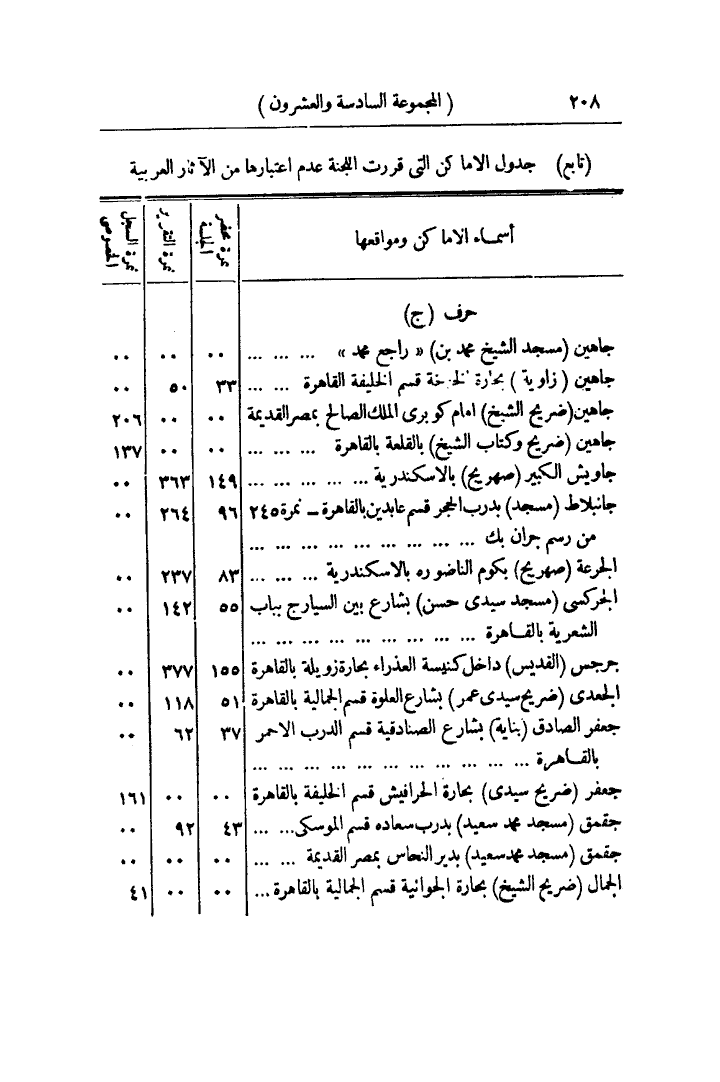 ٢٠٨ (المجموعة السادسة والعشرون)
(تابع) جدول الاماكن التى قررت اللجنة عدم اعتبارها من الآثار العربية
أسماء الاماكن ومواقعها | نمرة محضر الجلسة | نمرة التقرير | نمرة السجل الخصوصى
حرف (ج)
جاهين (مسجد الشيخ محمد بن) « راجع محمد » ... ... ... | ٠٠ | ٠٠ | ٠٠
جاهين (زاوية) بحارة قسم الخليفة القاهرة ... ... | ٣٣ | ٥٠ | ٠٠
جاهين (ضريح الشيخ) امام كوبرى الملك الصالح بمصر القديمة | ٠٠ | ٠٠ | ٢٠٦
جاهين (ضريح وكتاب الشيخ) بالقلعة بالقاهرة ... ... ... | ٠٠ | ٠٠ | ١٣٧
جاويش الكبير (صهريج) بالاسكندرية ... ... ... ... ... | ١٤٩ | ٣٦٣ | ٠٠
جانبلاط (مسجد) بدرب الحجر قسم عابدين بالقاهرة – نمرة ٢٤٥ | ٩٦ | ٢٦٤ | ٠٠
من رسم جران بك ... ... ... ... ... ... ... ... ...
الجرعة (صهريج) بكوم الناضوره بالاسكندرية ... ... ... | ٨٣ | ٢٣٧ | ٠٠
الجركسى (مسجد سيدى حسن) بشارع بين السيارج بباب | ٥٥ | ١٤٢ | ٠٠
الشعرية بالقاهرة ... ... ... ... ... ... ... ... ...
جرجس (القديس) داخل كنيسة العذراء بحارة زويلة بالقاهرة | ١٥٥ | ٣٧٧ | ٠٠
الجعدى (ضريح سيدى عمر) بشارع العلوة قسم الجمالية بالقاهرة | ٥١ | ١١٨ | ٠٠
جعفر الصادق (بناية) بشارع الصنادقية قسم الدرب الاحمر | ٣٧ | ٦٢ | ٠٠
بالقاهرة ... ... ... ... ... ... ... ... ... ... ...
جعفر (ضريح سيدى) بحارة الحرافيش قسم الخليفة بالقاهرة | ٠٠ | ٠٠ | ١٦١
جقمق (مسجد محمد سعيد) بدرب سعاده قسم الموسكى ... ... | ٤٣ | ٩٢ | ٠٠
جقمق (مسجد محمد سعيد) بدير النحاس بمصر القديمة ... ... | ٠٠ | ٠٠ | ٠٠
الجمال (ضريح الشيخ) بحارة الجوانية قسم الجمالية بالقاهرة ... | ٠٠ | ٠٠ | ٤١